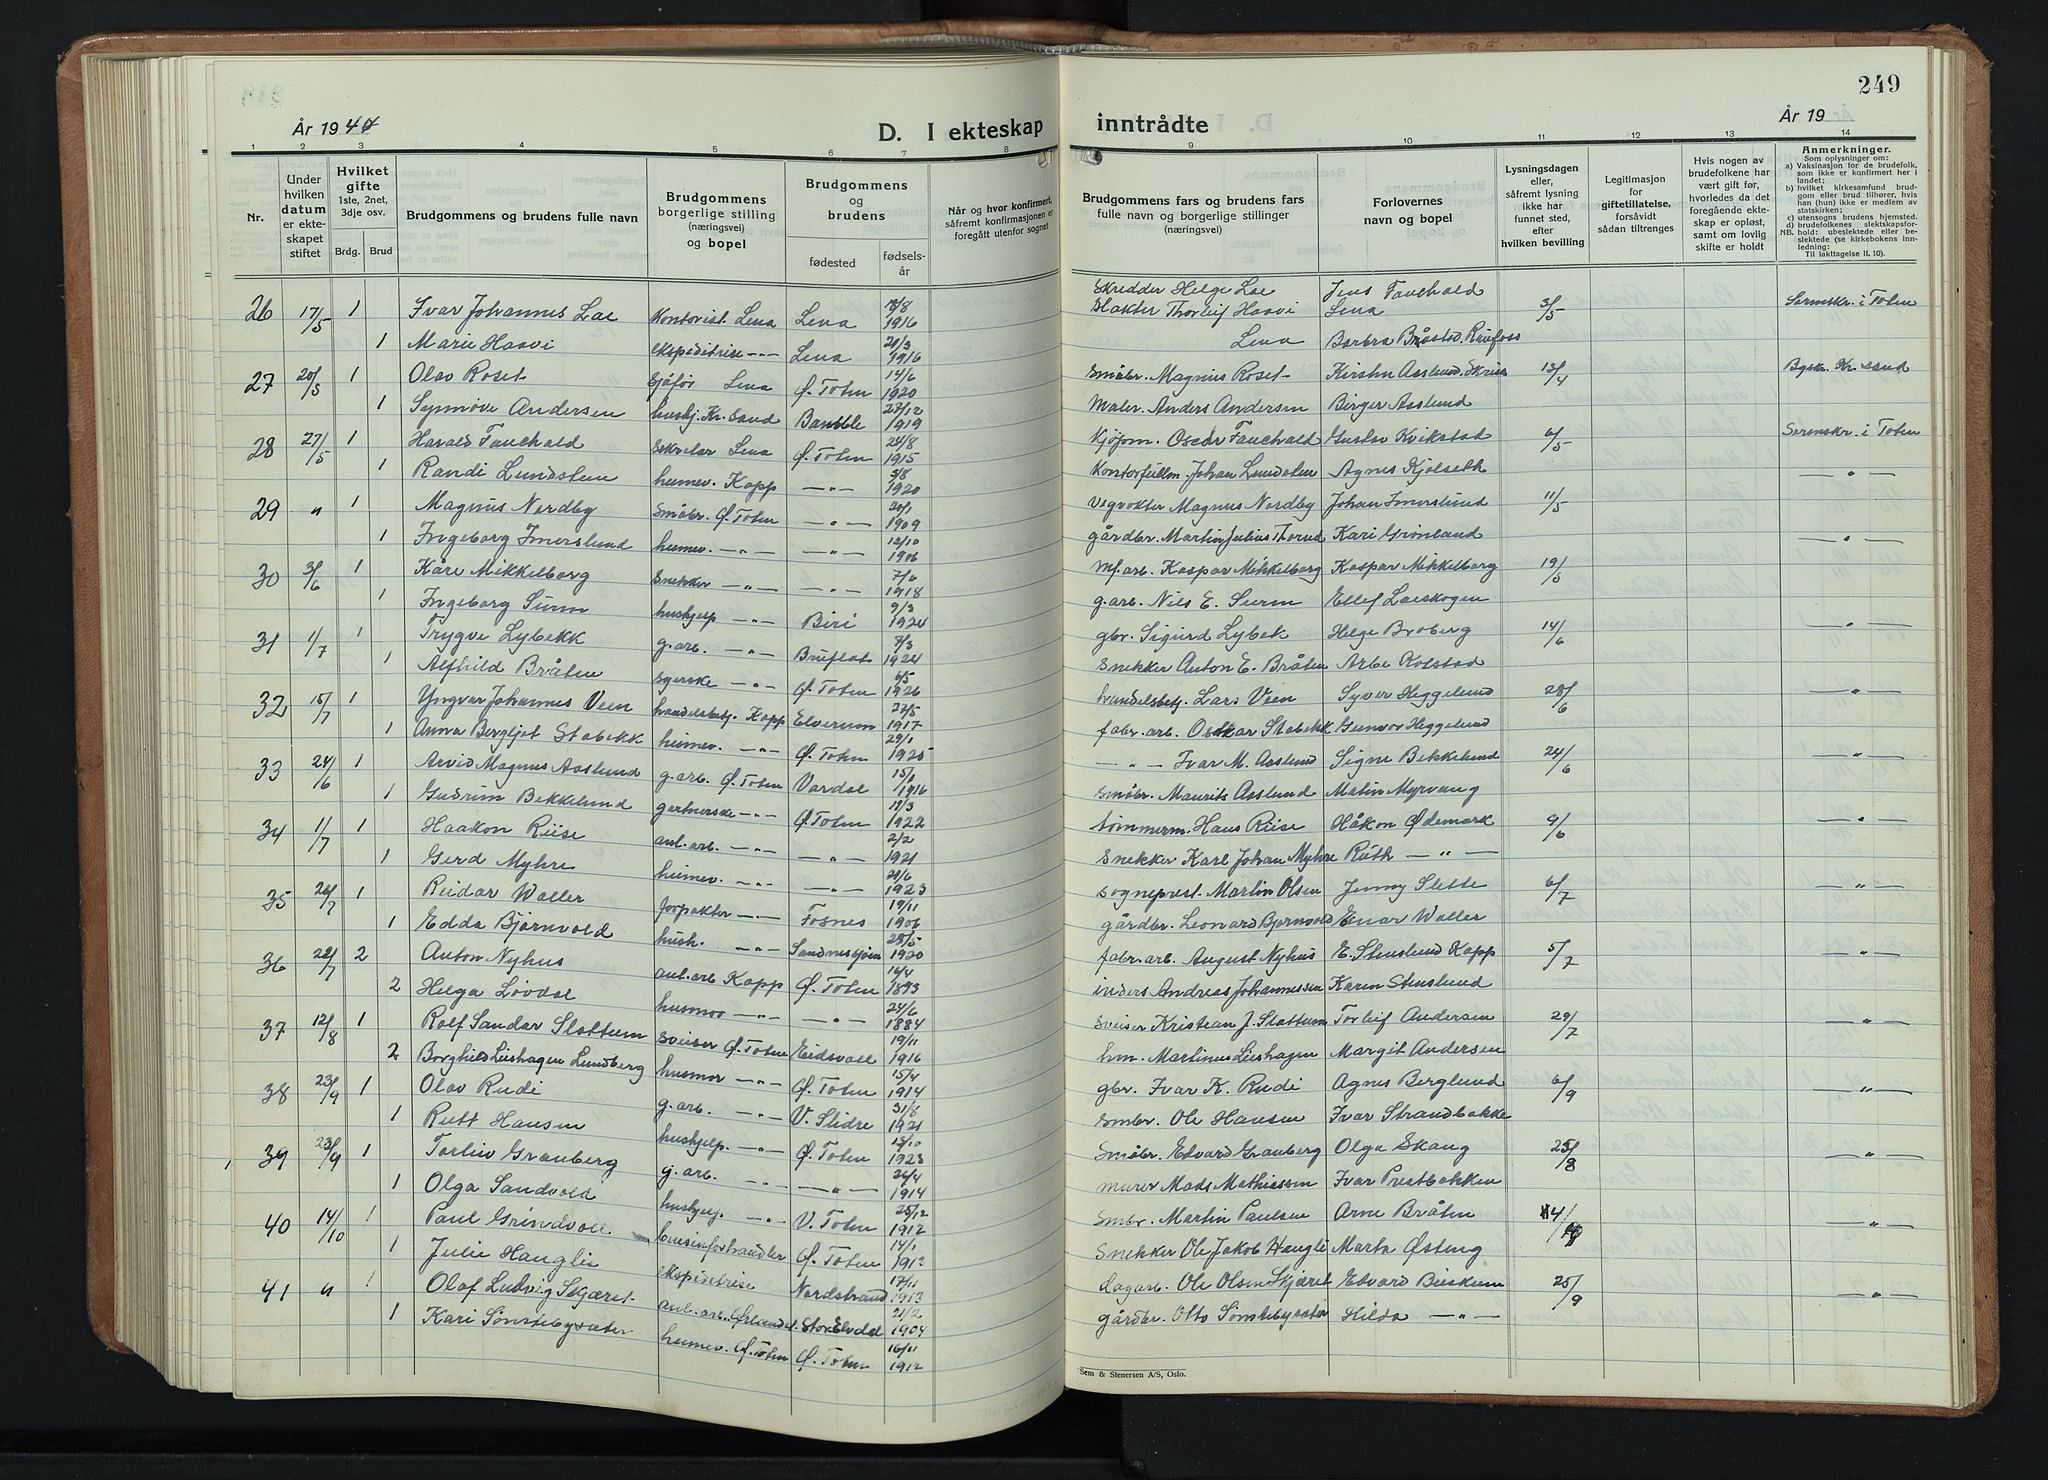 249
År 1944
D. I ekteskap inntrådte
År 19
1 2 3 4 5 6 7 8 9 10 11 12 13 14
Nr.
Under hvilken datum er ekteskapet stiftet
Hvilket gifte 1ste, 2net, 3dje osv.
Brdg. Brud
Brudgommens og brudens fulle navn
Brudgommens borgerlige stilling (næringsvei) og bopel
Brudgommens og brudens
fødested
fødselsår
Når og hvor konfirmert, såfremt konfirmasjonen er foregått utenfor sognet
Brudgommens fars og brudens fars fulle navn og borgerlige stillinger (næringsvei)
Forlovernes navn og bopel
Lysningsdagen eller, såfremt lysning ikke har funnet sted, efter hvilken bevilling
Legitimasjon for giftetillatelse, forsåvidt sådan tiltrenges
Hvis nogen av brudefolkene har vært gift før, hvorledes da det foregående ekteskap er opløst, samt om lovlig skifte er holdt
Anmerkninger.
Som oplysninger om:
a) Vaksinasjon for de brudefolk, som ikke er konfirmert her i landet;
b) hvilket kirkesamfund brudgom eller brud tilhører, hvis han (hun) ikke er medlem av statskirken;
c) utensogns brudens hjemsted.
d) brudefolkenes slektskapsforhold: ubeslektede eller beslektede (se kirkebokens innledning:
NB. Til Iakttagelse II. 10).
26 17/5 1 Ivar Johannes Lae Kontorist Lena Lena 18/8 1916 Skredder Helge Lae Jens Fauchald Lena 3/5 Sorenskr. i Toten
1 Marie Haavi ekspeditrise -"- Lena 21/3 1916 Slakter Thorleif Haavi Lena Borbra Bråstad, Raufoss
27 20/5 1 Olav Roset Sjåfør Lena Ø. Toten 14/6 1920 Småbr. Magnus Roset Kirsten Aaslund, Skreia 13/4 Bysk. Kr. sand
1 Synnøve Andersen hushj. Kr. Sand Bamble 27/12 1919 Maler Anders Andersen Birger Aaslund
28 27/5 1 Harald Fauchald Sekretær Lena Ø. Toten 24/8 1915 Kjøpm. Oscar Fauchald Gustav Kvikstad 6/5 Sorenskr. i Toten
1 Randi Lundsten heimev. Kapp -"- 3/8 1920 Kontorfullm. Johan Lundsten Agnes Kjølseth -"-
29 " 1 Magnus Nordby Småbr. Ø. Toten -"- 20/1 1909 Vegvokter Magnus Nordby Johan Imerslund 11/5
1 Ingeborg Imerslund heimev. -"- -"- 12/10 1906 gårdbr. Martin Julius Thorud Kari Grønland -"-
30 3/6 1 Kåre Mikkelborg Snekker -"- -"- 7/6 1918 mf. arb. Kaspar Mikkelborg Kaspar Mikkelborg 19/5
1 Ingeborg Surm hushjelp -"- Biri 9/3 1924 g.arb. Nils E. Surm Ellef Laeskogen
31 1/7 1 Trygve Lybekk g.arb. -"- Bruflat 7/3 1924 gbr. Sigurd Lybek Helge Broberg 14/6 -"-
1 Alfhild Bråten Syerske -"- Ø. Toten 6/5 1926 Snekker Anton E. Bråten Arbe Kolstad
32 15/7 1 Yngvar Johannes Veen handelsbetj. Kapp Elverum 27/5 1917 handelsbetj. Lars Veen Syver Heggelund 28/6 -"-
1 Anna Bergljot Stabekk heimev. -"- Ø. Toten 29/1 1925 fabr. arb. Oskar Stabekk Gunvor Heggelund
33 24/6 1 Arvid Magnus Aaslund g.arb. Ø. Toten Vardal 15/1 1916 -"- Ivar M. Aaslund Signe Bekkelund 24/6 -"-
1 Gudrun Bekkelund gartnerske -"- Ø. Toten 19/3 1922 Småbr. Maurits Aaslund Matin Myrvang
34 1/7 1 Haakon Riise anl. arb. -"- -"- 2/2 1921 tømmerm. Hans Riise Håkon Ødemark 9/6 -"-
1 Gerd Myhre heimev. -"- -"- 21/6 1923 Snekker Karl Johan Myhre Ruth -"-
35 26/7 1 Reidar Waller forpakter -"- Fosnes 19/11 1906 Sogneprest. Martin Olsen Jenny Slette 6/7 -"-
1 Edda Bjørnvold hush. -"- Sandnessjøen 28/5 1920 gårdbr. Leonard Bjørnvold Einar Waller
36 22/7 2 Anton Nyhus anl. arb. Kapp Ø. Toten 16/4 1893 fabr. arb. August Nyhus E. Stenslund Kapp 5/7 -"-
2 Helga Løvdal husmor -"- -"- 24/6 1884 inders Andreas Johannessen Karen Stenslund
37 12/8 1 Rolf Sandar Slottum Sveiser Ø. Toten Eidsvoll 19/11 1916 Sveiser Kristian J. Slottum Torleif Andersen 29/7 -"-
2 Borghild Leishagen Lundberg husmor -"- Ø. Toten 15/4 1914 hm. Martinus Leishagen Margit Andersen
38 23/9 1 Olav Rudi g. arb. -"- V. Slidre 31/8 1921 gbr. Ivar K. Rudi Agnes Berglund 6/9 -"-
1 Rutt Hansen hushjelp. -"- Ø. Toten 13/10 1923 Smbr. Ole Hansen Ivar Strandbakke
39 23/9 1 Torleiv Granberg g. arb. -"- -"- 24/4 1914 Småbr. Edvard Granberg Olga Skang 25/8 -"-
1 Olga Sandvold hushjelp. -"- V. Toten 25/12 1912 murer Mads Mathiassen Ivar Prestbakken
40 14/10 1 Paul Grindvoll bensinforhandler Ø. Toten 14/1 1912 Smbr. Martin Paulsen Arne Bråten 14/9 -"-
1 Julie Hanglie ekspeditrise Nordstrand 17/11 1913 Snekker Ole Jakob Haugli Marta Østeng
41 " 1 Olaf Ludvig Skjæret anl. arb. Ørlandet. Stor Elvdal 21/2 1904 dagarb. Ole Olsen Skjæret Edvard Bieskem 25/9 -"-
1 Kari Sønstebysæter heimev. Ø. Toten Ø. Toten 16/11 1912 gårdbr. Otto Sønstebysæter Hilda -"-
Sem & Stenersen A/S, Oslo.